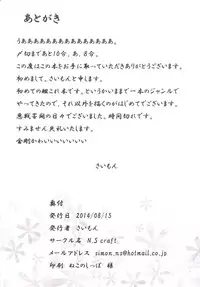 あとがき
うああああああああああああああ。
〆切まであと10分、あ、8分。
この度はこの本をお手に取っていただきありがとうございます。
初めまして、さいもんと申します。
初めての艦これ本です。というかいままで一本のジャンルで
やってきたので、それ以外を描くのがはじめてでございます。
悪戦苦闘の日々でございました、時間切れです。
すみません失礼いたします。
金剛かわいいいいいいい
さいもん
奥付
発行日 2014/08/15
発行者 さいもん
サークル名 N.S craft.
メールアドレス simon_ns@hotmail.co.jp
印刷 ねこのしっぽ 様